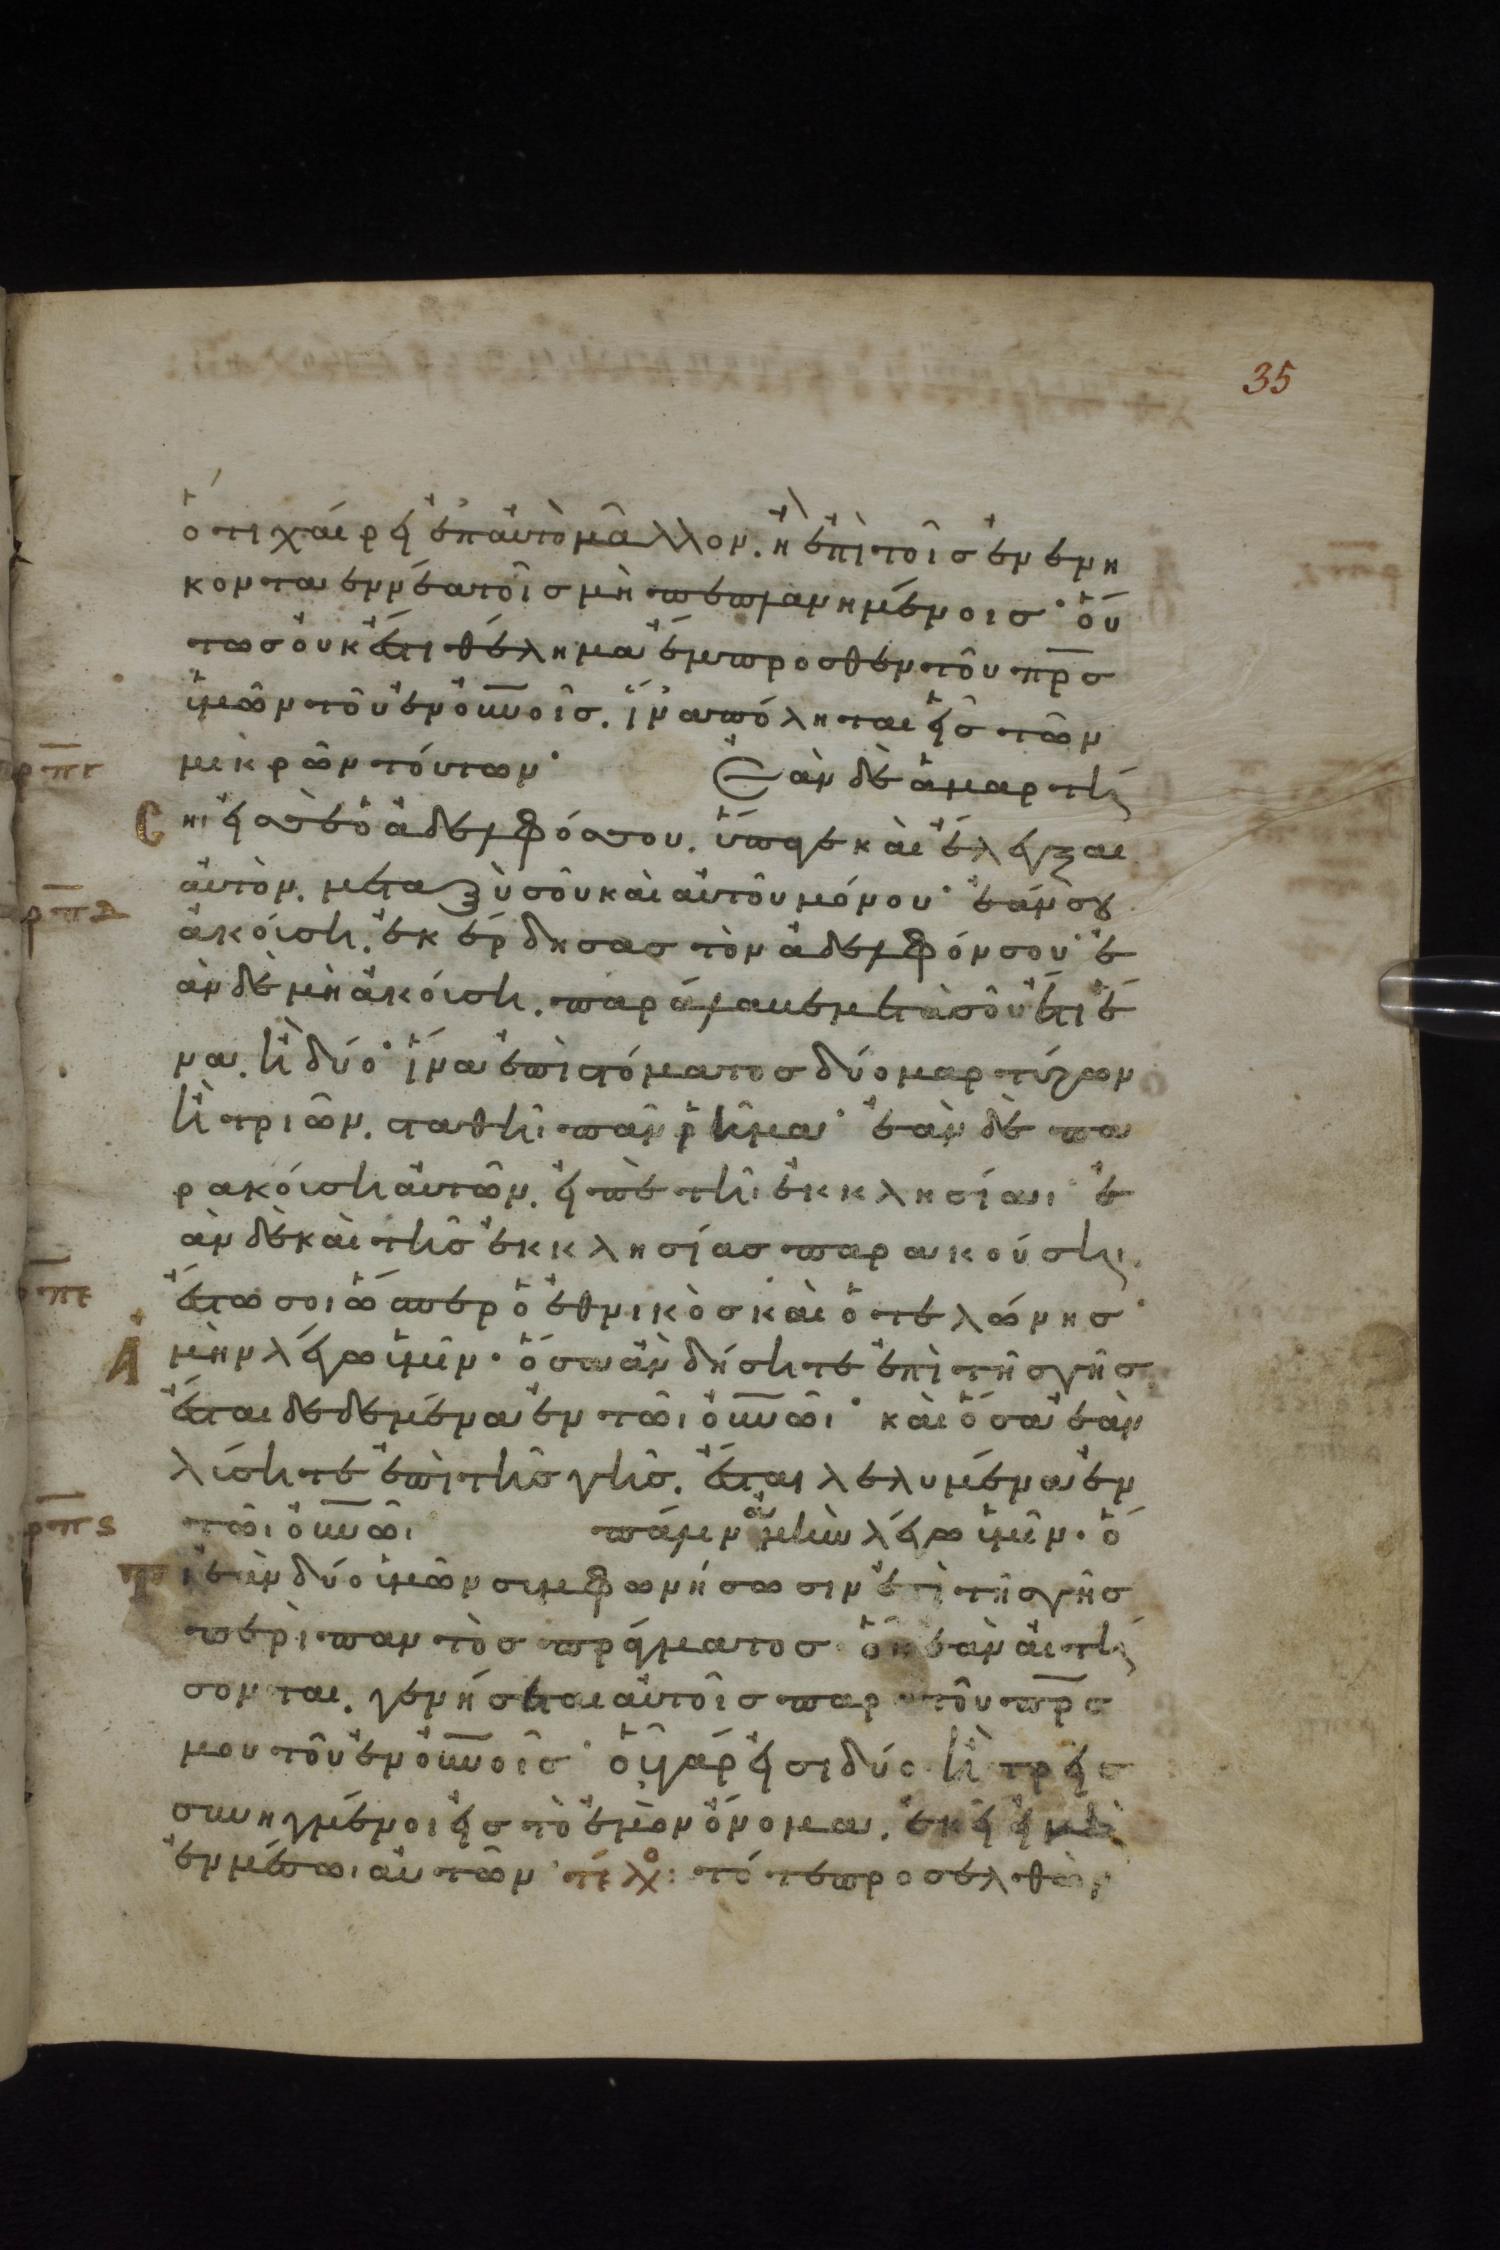 35
ὅτι χαίρει ἐπ αὐτὸ μᾶλλον. ἢ ἐπὶ τοῖσ ἐνενη
κονταεννέα τοῖσ μὴ πεπλανημένοισ· οὕ
τωσ οὐκ ἔστι θέλημα ἔμπροσθεν τοῦ πρ̅σ
ὑμῶν τοῦ ἐν οὐν̅οῖσ. ἵνα πόληται εἷσ τῶν
μικρῶν τούτων· Ἐὰν δὲ ἁμαρτή
ρπγ
σηι εἰσ σὲ ὁ ἀδελφόσ σου. ὕπαγε καὶ ἔλεγξαι
αὐτὸν. μεταξὺ σοῦ καὶ αὐτοῦ μόνου· ἐάν σου
ρπδ
ἀκούσῃ. ἐκέρδησασ τὸν ἀδελφόν σου· ἐ
ὰν δὲ μὴ ἀκούσῃ. παράλαυε μετὰ σοῦ ἔτι ἕ
να. ἢ δύο· ἵνα ἐπὶ στόματοσ δύο μαρτύρων
ἢ τριῶν. σταθῆι πᾶν ῥῆμα· ἐὰν δὲ πα
ρακούσῃ αὐτῶν. εἰπὲ τῆι ἐκκλησίαι· ἐ
ὰν δὲ καὶ τῆσ ἐκκλησίασ παρακούσηι.
ρπε
ἔστω σοι ὥσπερ ὁ ἐθνικὸσ καὶ ὁ τελώνησ·
Ἀ
μὴν λέγω ὑμῖν· ὅσα ἂν δήσητε ἐπὶ τῆσ γῆσ
ἔσται δεδεμένα ἐν τῶι οὐν̅ῶι· καὶ ὅσα ἐὰν
λύσητε ἐπὶ τῆσ γῆσ. ἔσται λελυμένα ἐν
τῶι οὐν̅ῶι πάλιν ἀμὴν λέγω ὑμῖν· ὅ
ρπς
τι ἐὰν δύο ὑμῶν συμφωνήσωσιν ἐπὶ τῆσ γῆσ
περὶ παντὸσ πράγματοσ οὗ ἐὰν αἰτή
σονται. γενήσεται αὐτοῖσ παρ τοῦ πρ̅σ
μου τοῦ ἐν οὐν̅οῖσ· οὗ γάρ εἰσι δύο ἢ τρεῖσ
συνηγμένοι εἰσ τὸ ἐμὸν ὄνομα. ἐκεῖ εἰμὶ
ἐν μέσωι αὐτῶν· τέλος: τότε προσελθὼν